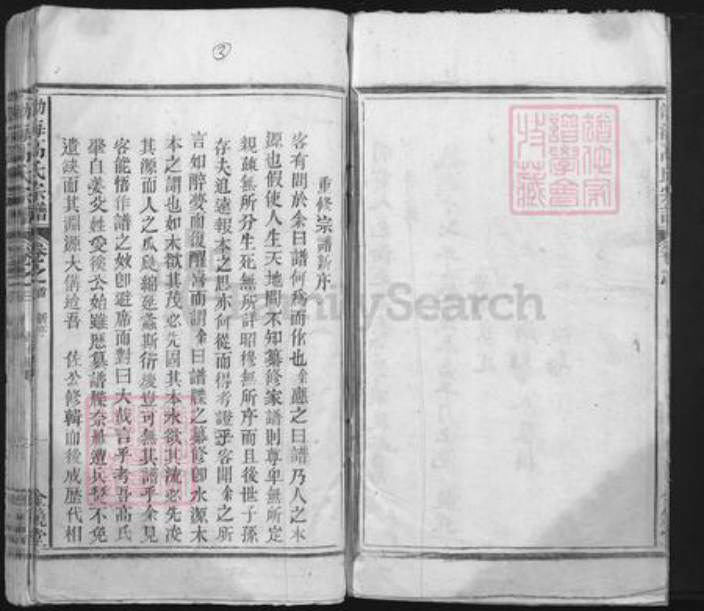 ③
重修宗譜新序
客有問於余曰譜何為而作也余應之曰譜乃人之本
源也假使人生天地間不知纂修家譜則尊卑無所定
親疎無所分生死無所詳昭穆無所序而且後世子孫
存夫追遠報本之思亦何從而得考證乎客聞余之所
言如醉夢而復醒喜而謂余曰譜牒之纂修卽水源木
本之謂也如木欲其茂必先固其本水欲其流必先浚
其源而人之瓜瓞綿延螽斯衍慶豈可無其譜乎余見
客能悟作譜之故卽避席而對曰大哉言乎考吾高氏
肇自姜炎姓受後公始雖歷纂譜牒奈疊遭兵燹不免
遺缺而其淵源大備迨吾 佐公修輯而後成歷代相
渤海高氏宗譜
卷之首 新序
FamilySearch